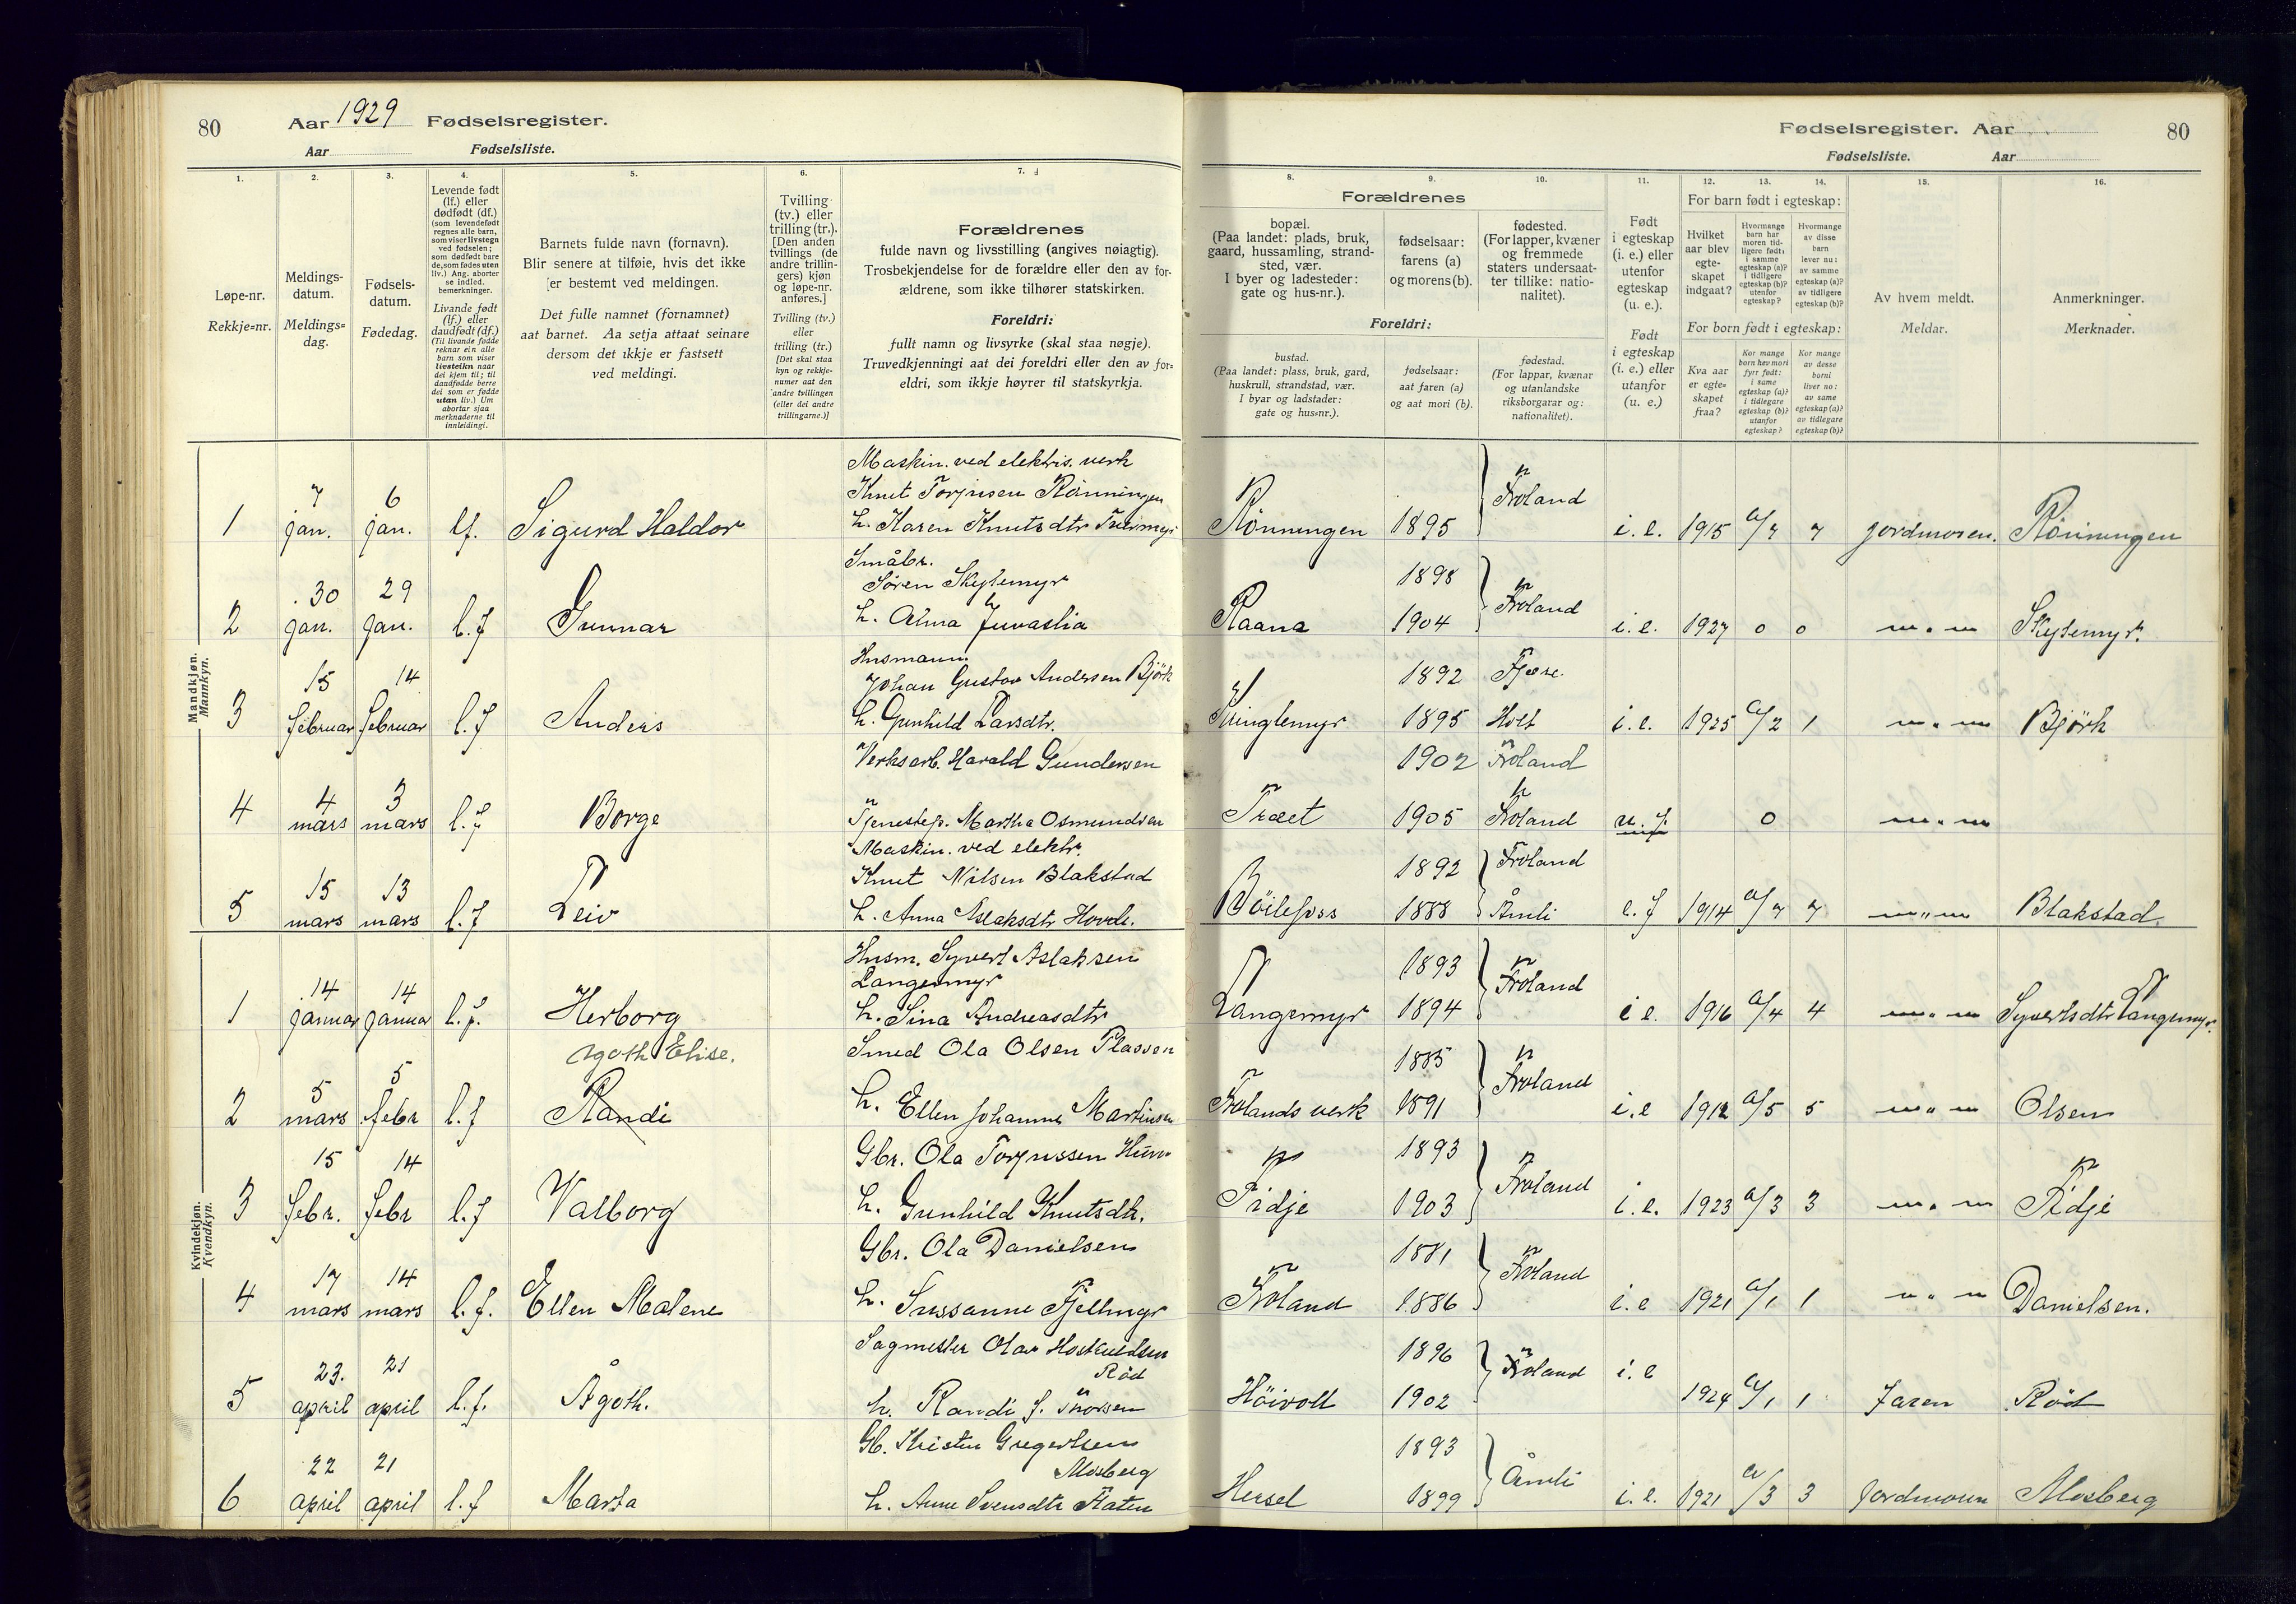 80 Aar 1929 Fødselsregister.
Aar Fødselsliste.
Fødselsregister. Aar 80
Fødselsliste. Aar
1. 2. 3. 4. 5. 6. 7.
Løpe-nr.
Rekkje=nr.
Meldings-
datum.
Meldings=
dag.
Fødsels-
datum.
Fødedag.
Levende født
(lf.) eller
dødfødt (df.)
(som levendefødt
regnes alle barn,
som viser livstegn
ved fødselen;
som dødfødt bare
de, som fødes uten
liv.) Ang. aborter
se indled.
bemerkninger.
Livande født
(lf.) eller
daudfødt (df.)
(Til livande fødde
reknar ein alle
barn som viser
livsteikn naar
dei kjem til; til
daudfødde berre
dei som er fødde
utan liv.) Um
abortar sjaa
merknaderne til
innleidingi.
Barnets fulde navn (fornavn).
Blir senere at tilføie, hvis det ikke
er bestemt ved meldingen.
Det fulle namnet (fornamnet)
aat barnet. Aa setja attaat seinare
dersom det ikkje er fastsett
ved meldingi.
Tvilling
(tv.) eller
trilling (tr.).
[Den anden
tvillings (de
andre trillin-
gers) kjøn
og løpe-nr.
anføres.]
Tvilling (tv.)
eller
trilling (tr.)
[Det skal staa
kyn og rekkje-
numer aat den
andre tvillingen
(eller dei andre
trillingarne.)]
Forældrenes
fulde navn og livsstilling (angives nøiagtig).
Trosbekjendelse for de forældre eller den av for-
ældrene, som ikke tilhører statskirken.
Foreldri:
fullt namn og livsyrke (skal staa nøgje).
Truvedkjenningi aat dei foreldri eller den av for=
eldri, som ikkje høyrer til statskyrkja.
8. 9. 10. 11. 12. 13. 14. 15. 16.
Forældrenes
bopæl.
(Paa landet: plads, bruk,
gaard, hussamling, strand-
sted, vær.
I byer og ladesteder:
gate og hus-nr.).
fødselsaar:
farens (a)
og morens (b).
fødested.
(For lapper, kvæner
og fremmede
staters undersaat-
ter tillike: natio-
nalitet).
Foreldri:
bustad.
(Paa landet: plass, bruk, gard,
huskrull, strandstad, vær.
I byar og ladstader:
gate og hus=nr.).
fødselsaar:
aat faren (a)
og aat mori (b).
fødestad.
(For lappar, kvænar
og utanlandske
riksborgarar og:
nationalitet).
Født
i egteskap
(i. e.) eller
utenfor
egteskap
(u. e.).
Født
i egteskap
(i. e.) eller
utanfor
(u. e.)
For barn født i egteskap:
Hvilket
aar blev
egte-
skapet
indgaat?
Hvormange
barn har
moren tid-
ligere født;
i samme
egteskap (a)?
i tidligere
egteskap (b)?
utenfor
egteskap?
Hvormange
av disse
barn
lever nu:
av samme
egteskap (a)?
av tidligere
egteskap (b)?
For born født i egteskap:
Kva aar
er egte-
skapet
fraa?
Kor mange
born hev mori
fyrr født:
i same
egteskap (a)?
i tidlegare
egteskap (b)?
utanfor
egteskap?
Kor mange
av desse
borni
liver no:
av same
egteskap (a)?
av tidlegare
egteskap (b)?
Av hvem meldt.
Meldar.
Anmerkninger.
Merknader.
Mandkjøn.
Mannkyn.
Maskin. ved elektris. verk
7 6 Knut Torjusen Rönningen
1 jan. jan. lf. Sigurd Haldor h. Karen Knutsdtr
Rönningen 1895 Froland i. e. 1915 a/7 7 jordmoren. Rönningen
Småbr.
30 29 Søren Skytemyr 1898
2 jan. jan. l.f Gunnar h. Alma Juvaslia
Raana 1904 Froland i. e. 1927 0 0 — " — Skytemyr.
Husmann.
15 14 Johan Gustav Andersen Björk 1892 Fjære.
3 februar februar l.f Anders h. Gunhild Larsdtr.
Kringlemyr 1895 Holt i. e. 1925 a/2 1 — " — Björk
Verksarb. Harald Gundersen 1902 Froland
4 3
4 mars mars l.f Borge Tjenestep. Martha Osmundsen
Træet 1905 Froland u. f. 0 — " —
Maskin. ved elektr.
15 13 Knut Nilsen Blakstad 1892 Froland
5 mars mars l.f Leiv h. Anna Aslaksdtr Hovde.
Böilefoss 1888 Åmli e. f 1914 a/7 7 — " — Blakstad.
Kvindekjøn.
Kvendkyn.
Husm. Syvert Aslaksen
14 14 Langemyr 1893
1 januar januar l.f. Herborg h. Sina Andreasdtr
Langemyr 1894 Froland i e. 1916 a/4 4 — " — Syvertsdtr Langemyr.
Agoth Elise. Smed Ola Olsen Plassen 1885
5 5
2 mars febr l.f Randi h. Ellen Johanne Martinsen
Frolands verk 1891 Froland i. e 1912 a/5 5 — " — Olsen
15 14 Gbr. Ola Torjussen 1893
3 febr. febr l.f Valborg h. Gunhild Knutsdtr.
Tidje 1903 Froland i. e. 1923 a/3 3 — " — Tidje
Gbr. Ola Danielsen 1881
17 14
4 mars mars l. f. Ellen Malene h. Sussanne Fjellmyr
Froland 1886 Froland i. e 1921 a/1 1 — " — Danielsen.
Sagmester Olav Hoskuldsen 1896
23. 21 Röd
5 april april l. f. Ågoth. h. Randi J. Thorsen
Höivoll 1902 Froland i. e 1924 a/1 1 Faren Röd
Gb. Kristen Gregertsen 1893
22 21 Mosberg
6 april april l. f Marta h. Anne Svensdtr Flaten
Hersel 1899 Åmli i. e. 1921 a/3 3 Jordmoren Mosberg